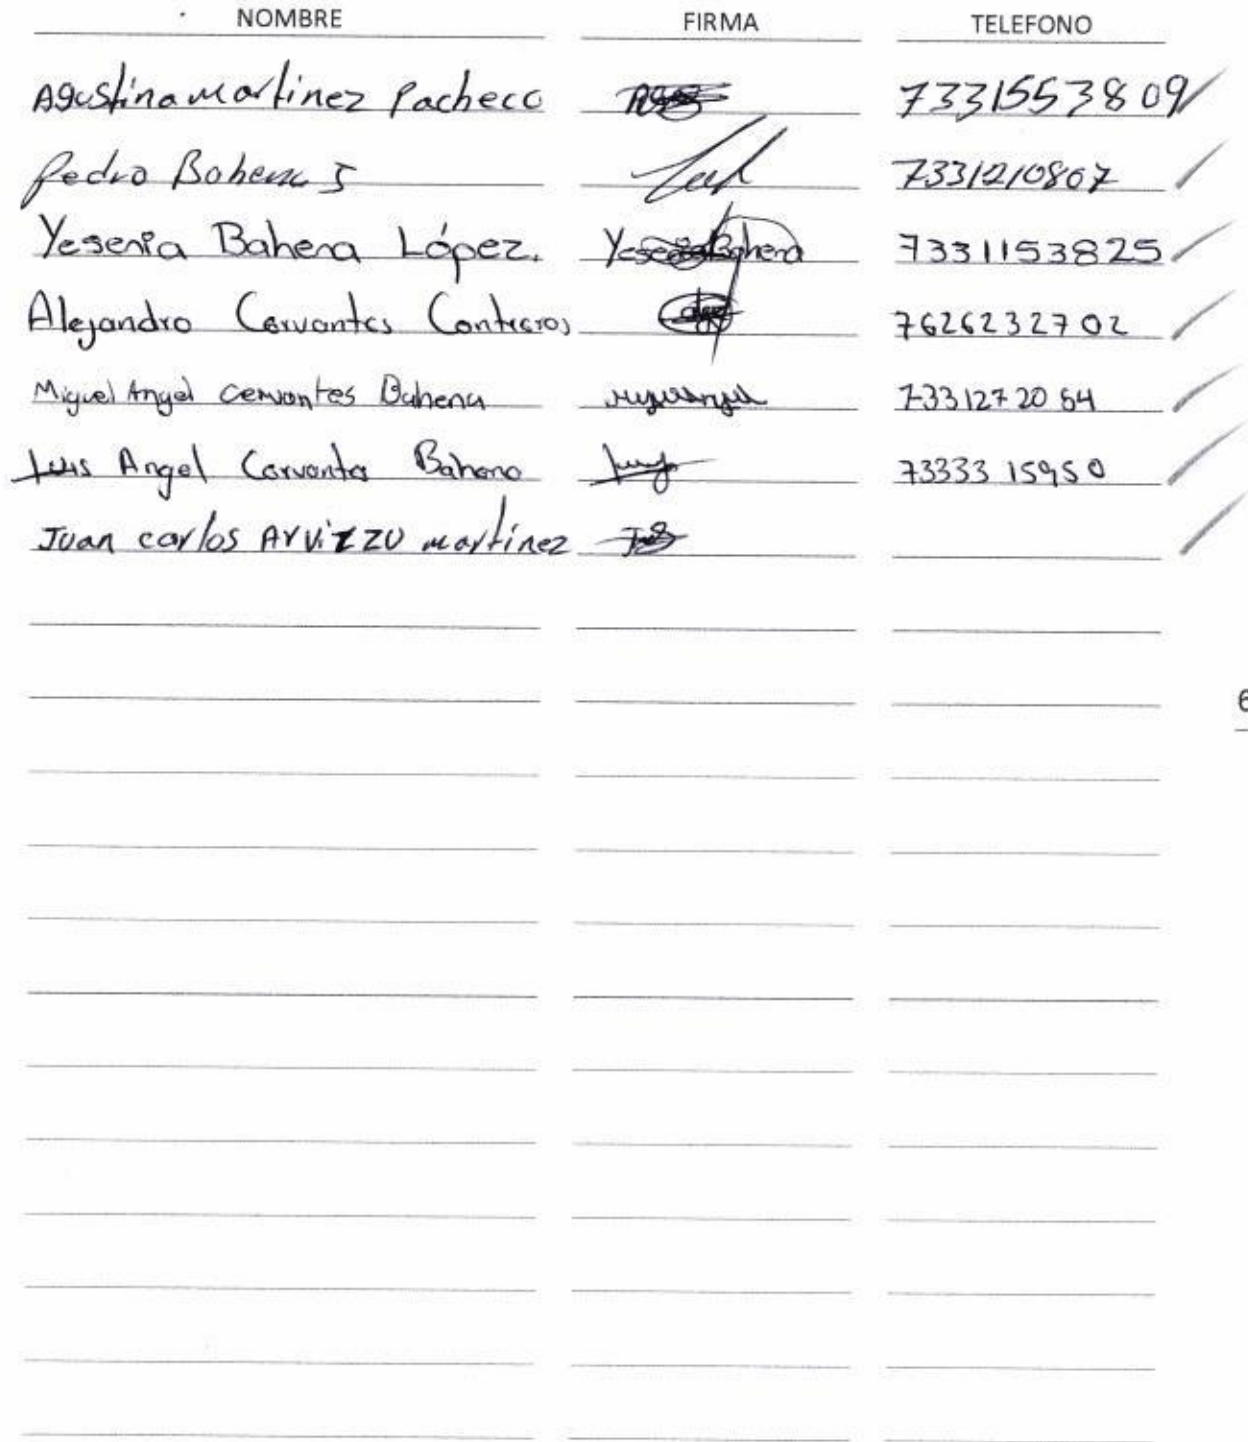 NOMBRE FIRMA TELEFONO
Agustina Martinez Pacheco 7331553809
Pedro Bahena J 7331210807
Yesenia Bahena López. Yesenia Bahena 7331153825
Alejandro Cervantes Contreros 7626232702
Miguel Angel Cervantes Bahena 7331272064
Luis Angel Cervantes Bahena 73333 15950
Juan carlos ArvizZU martinez
6